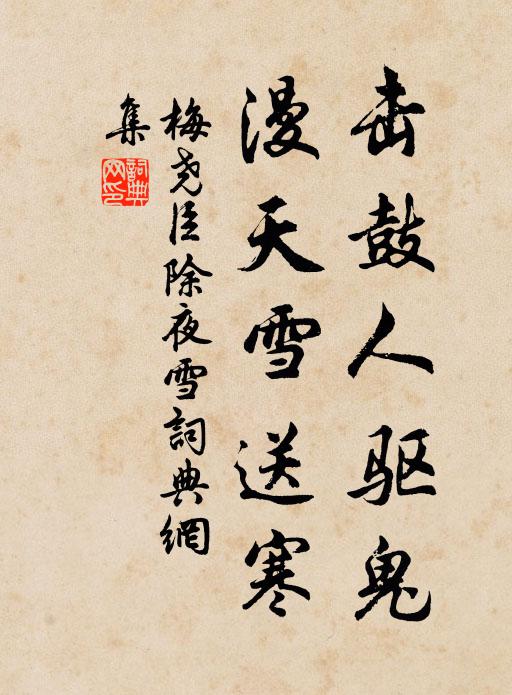 击鼓人驱鬼
漫天雪送寒
梅尧臣除夜雪詞典網
集
詞典
网印